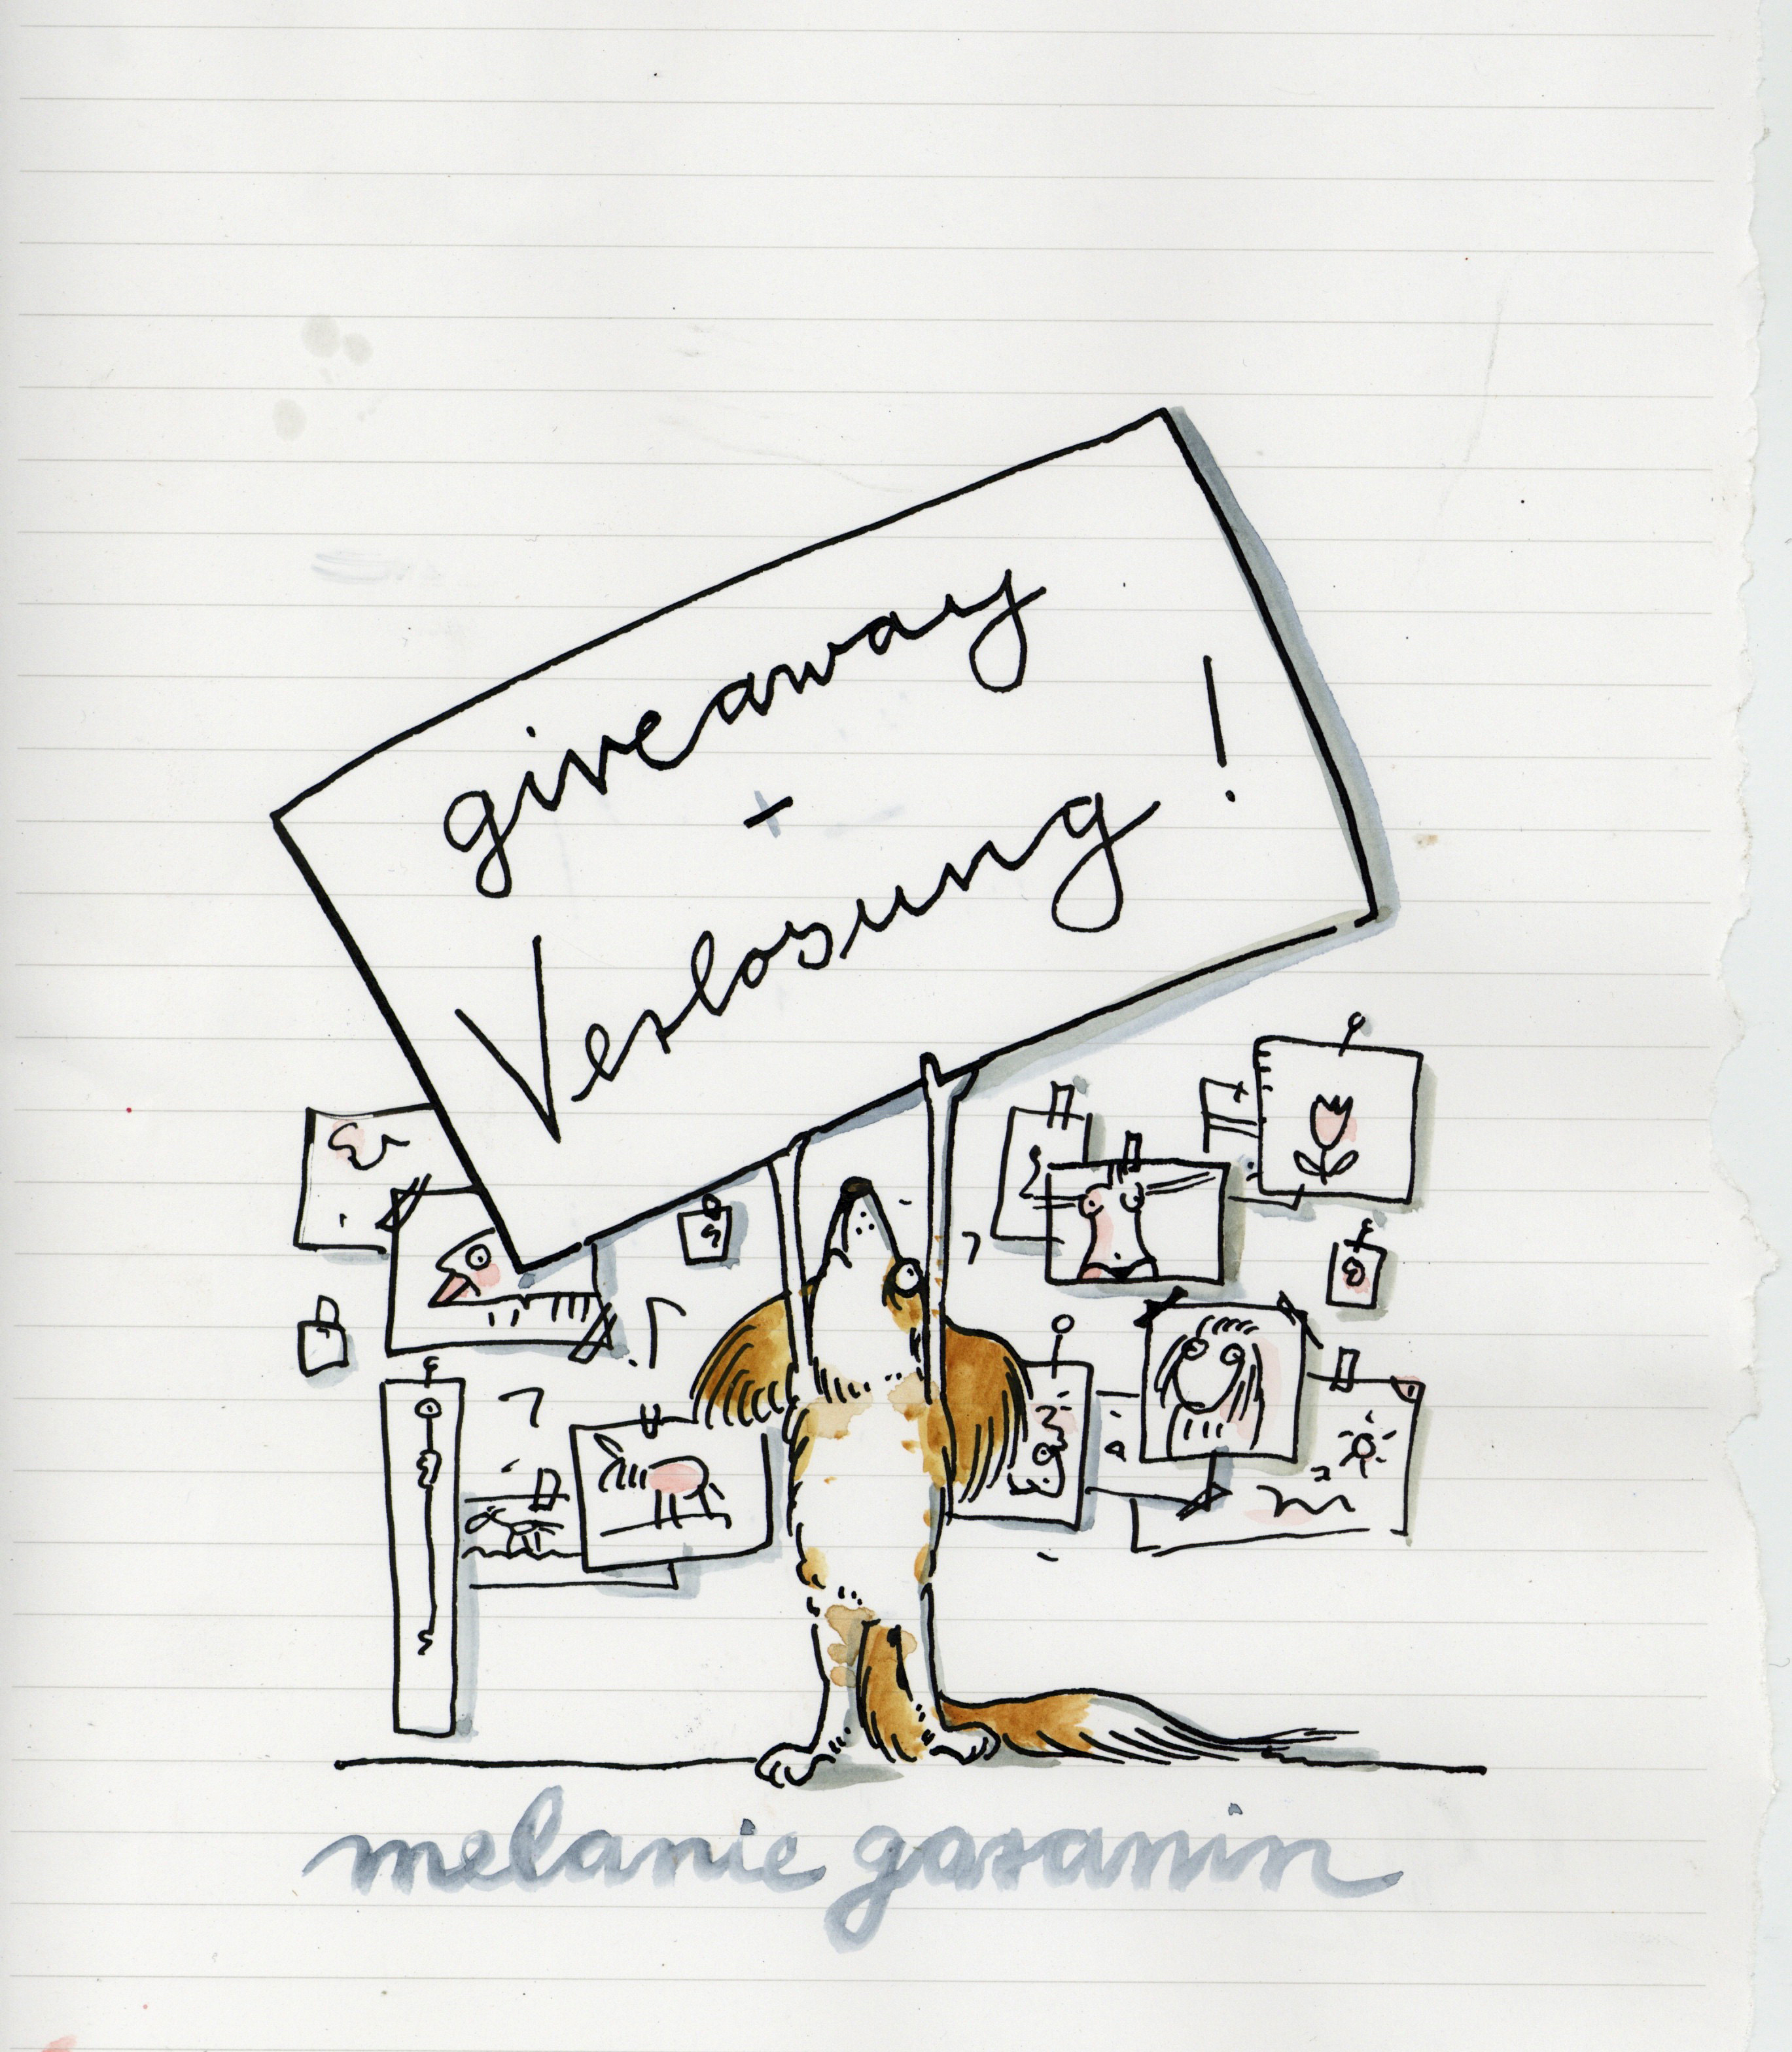 giveaway
+
Verlosung!
melanie garanin